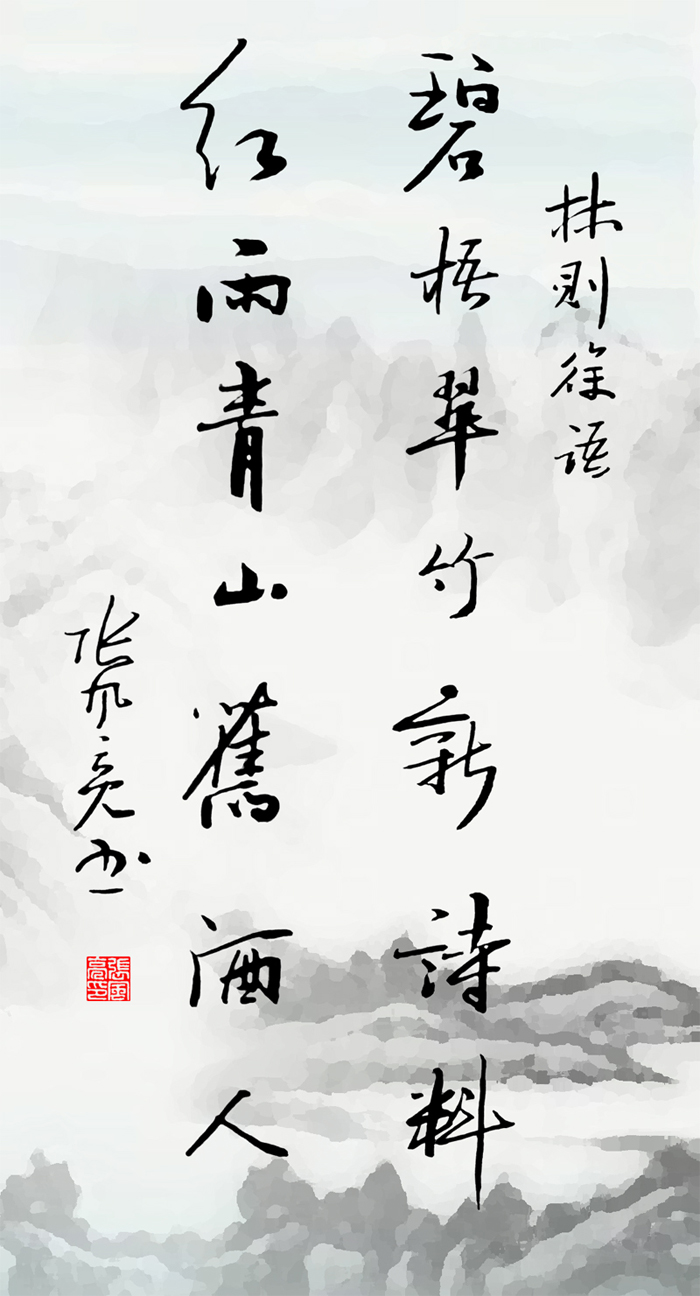 林则徐语
碧梧翠竹新詩料
红雨青山舊酒人
张风亮书
張風亮印